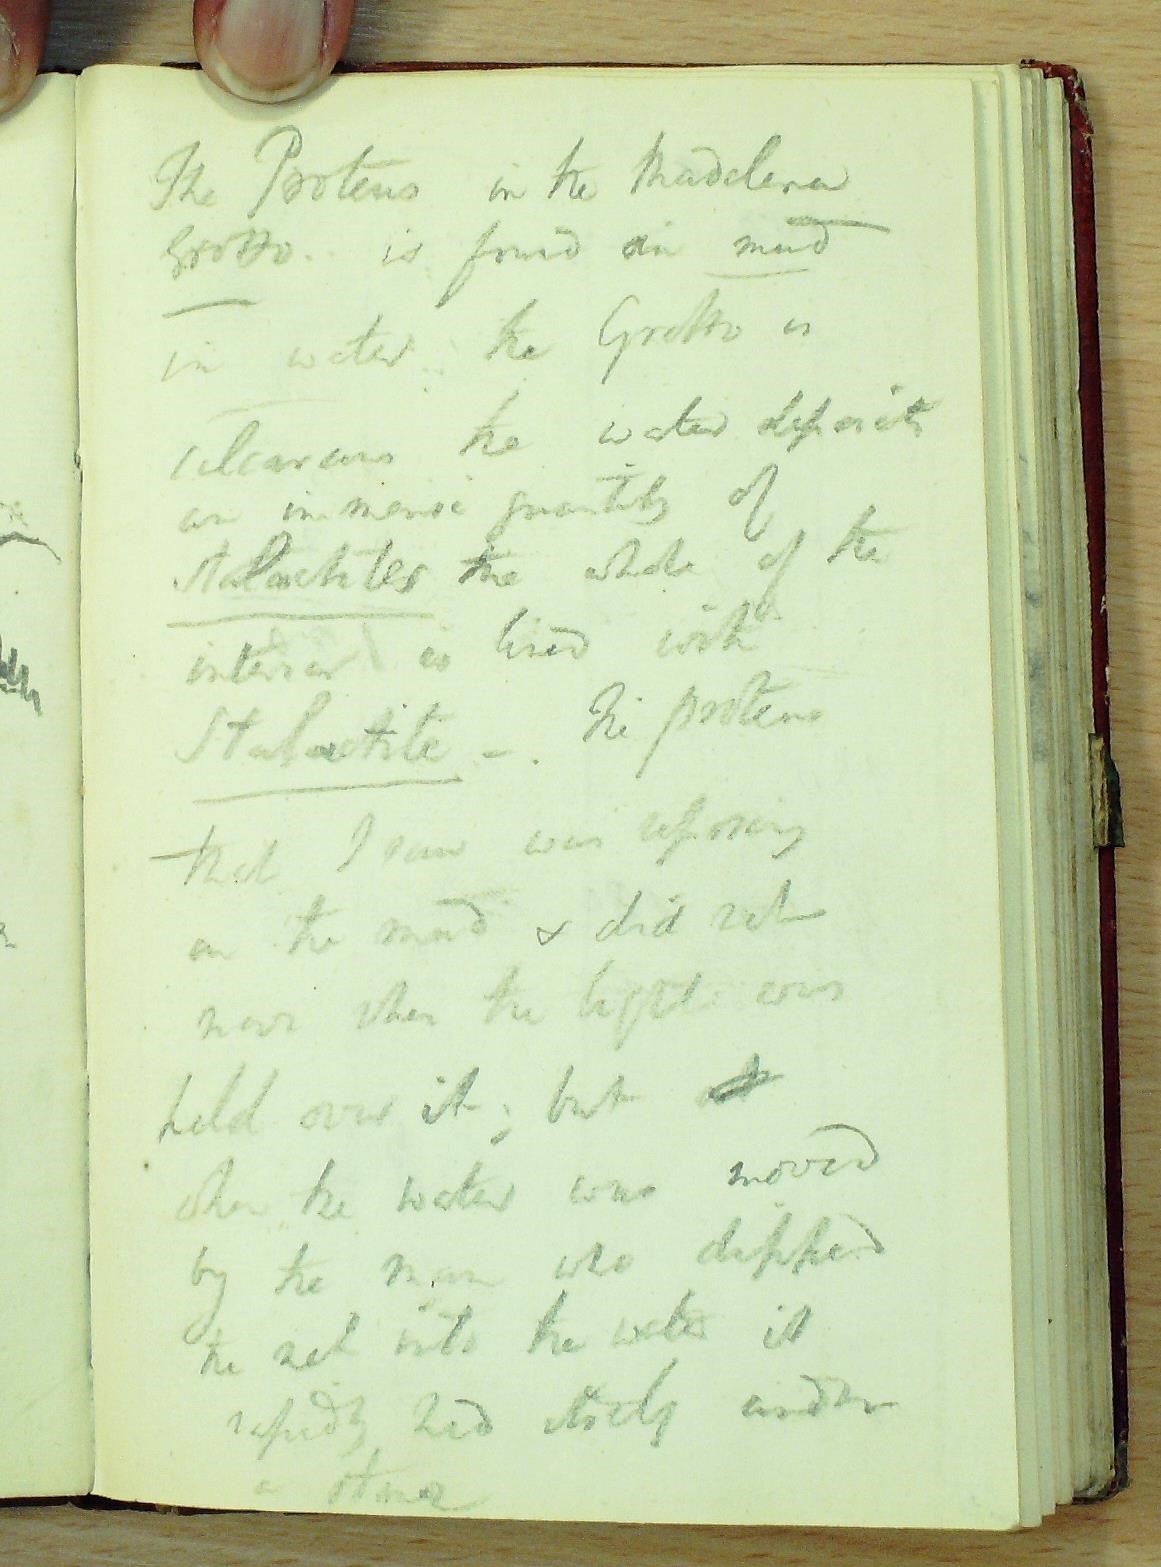 The Proteus in the Maddelena
Grotto. is found in mud
in water. the Grotto is
calcareous the water deposits
an immense quantity of
Stalactites the whole of the
interior is lined with
Stalactite -. The proteus
that I saw was reposing
on the mud & did not
move when the light was
held over it; but
when the water was moved
by the man who dipped
the net into the water it
rapidly hid itself under
a stone